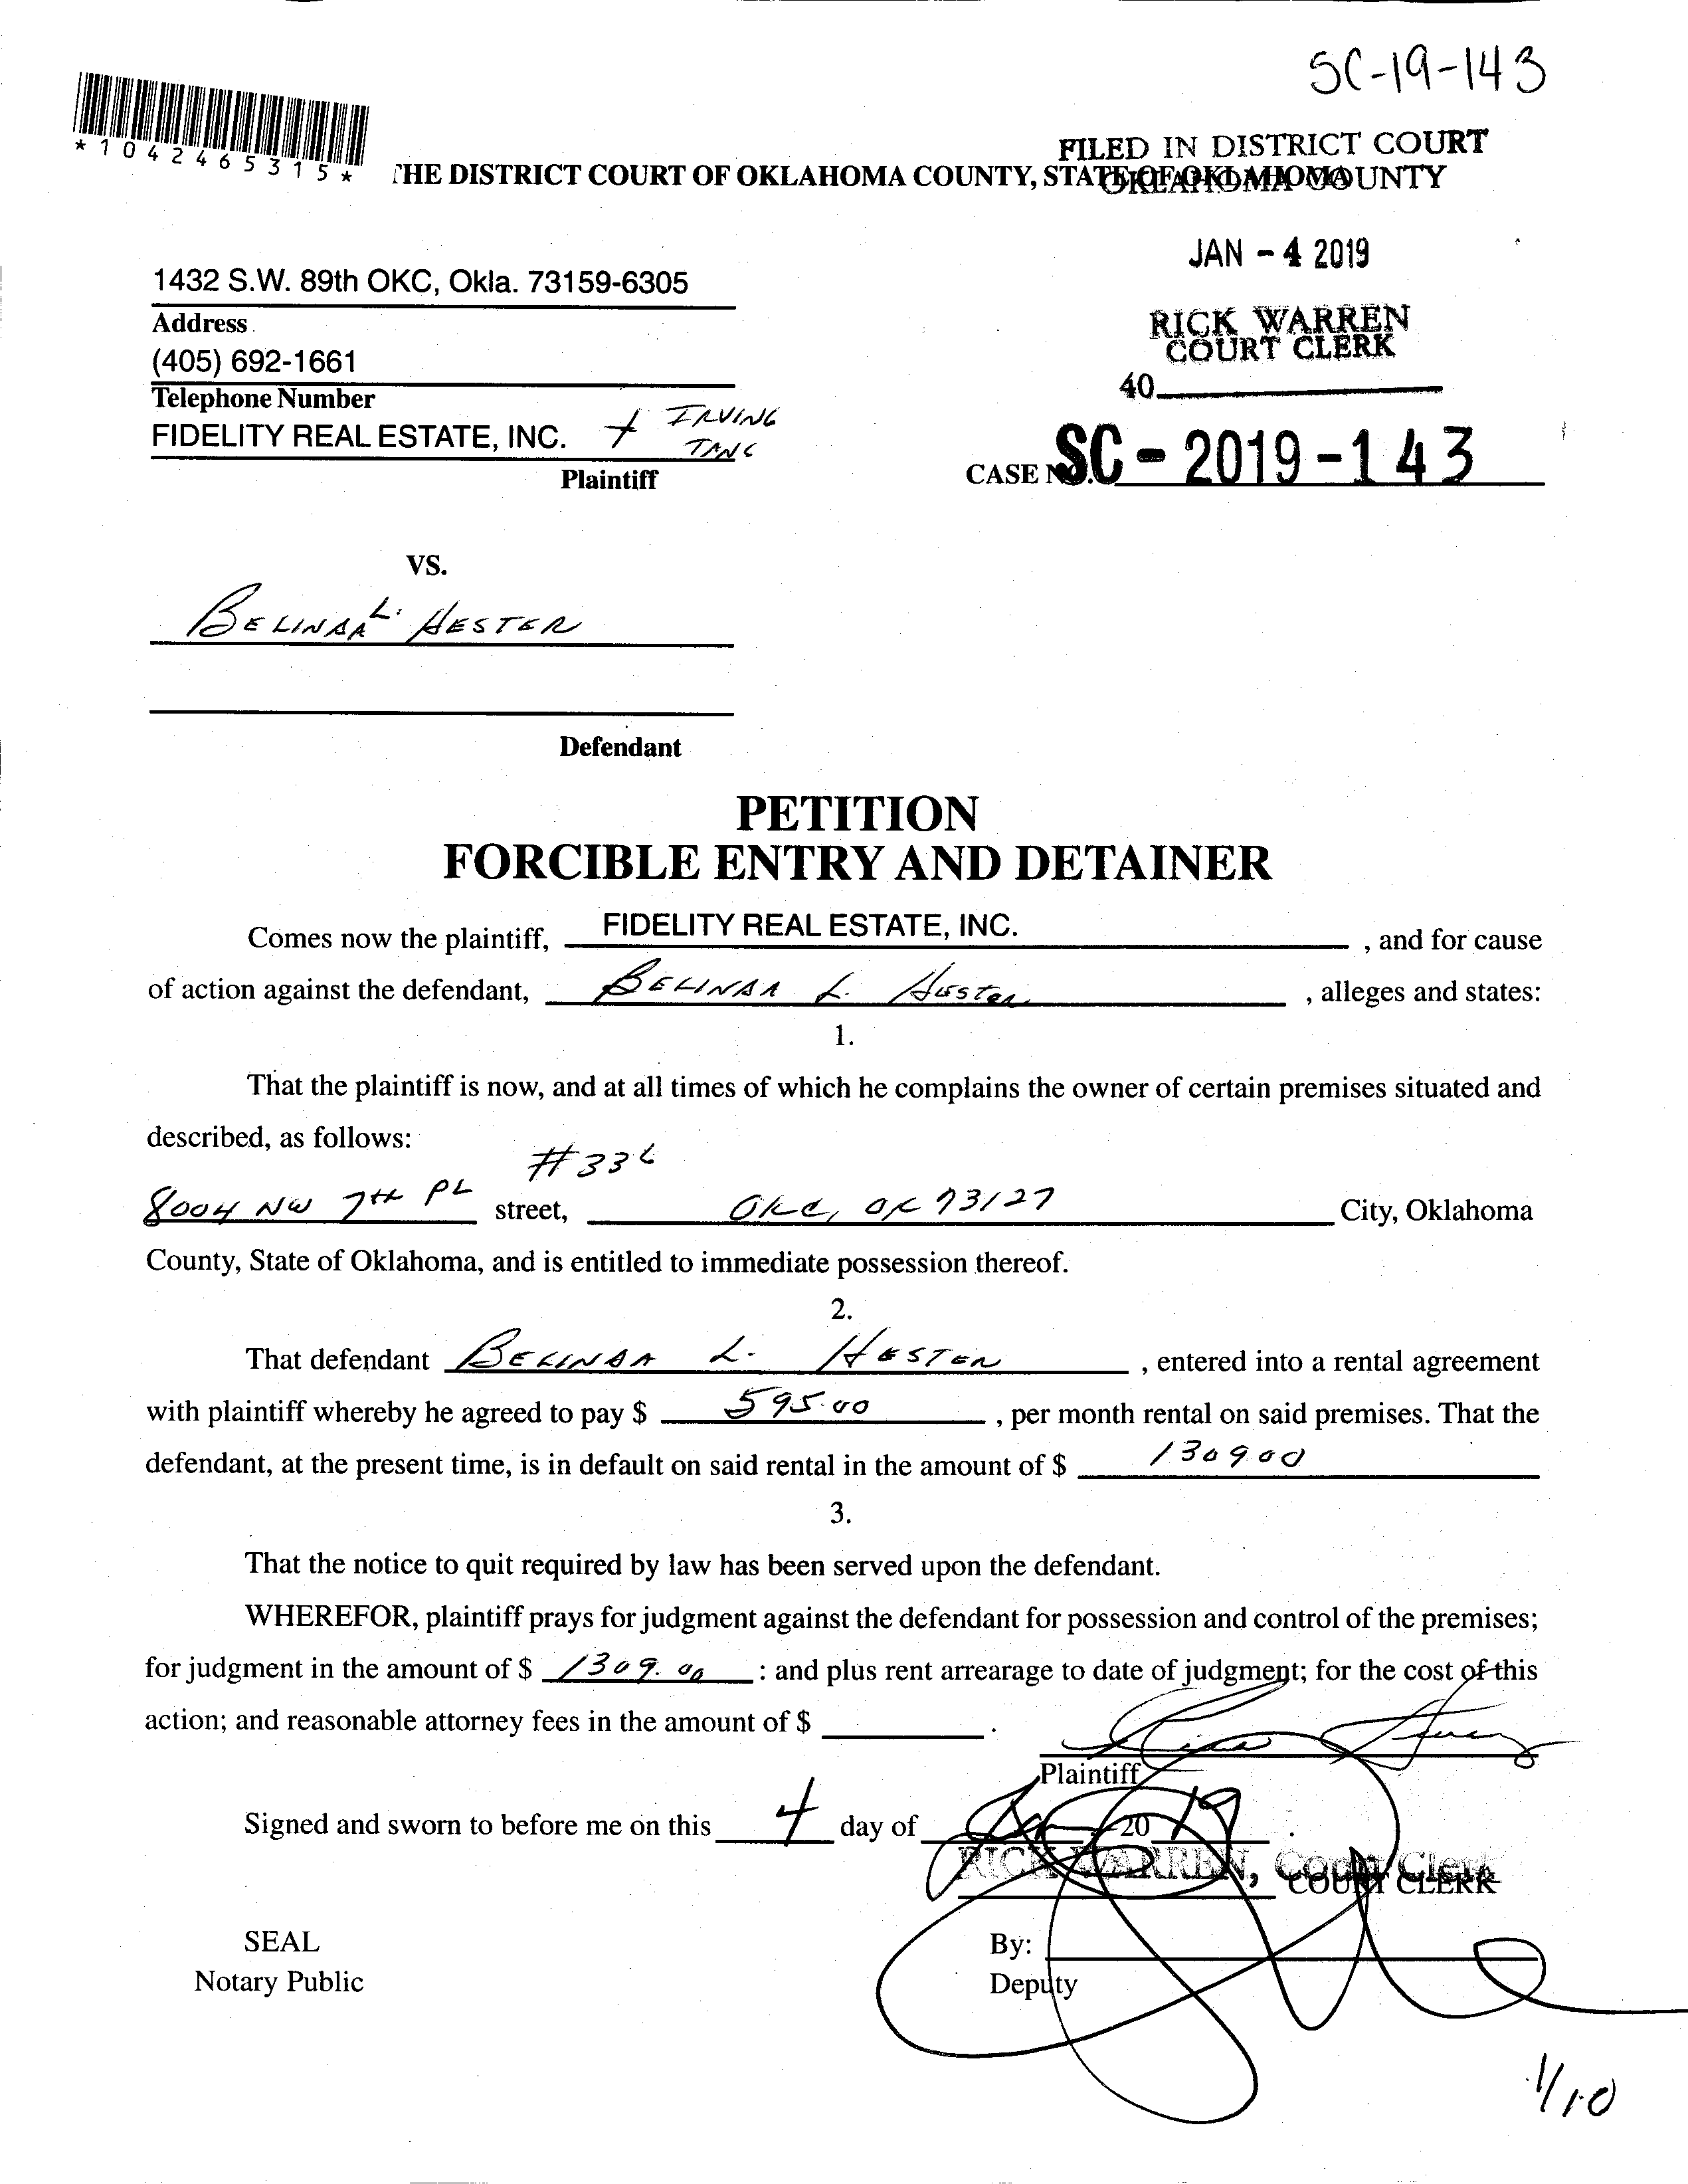 SC-19-143
*1042465315*
FILED IN DISTRICT COURT
OKLAHOMA COUNTY
THE DISTRICT COURT OF OKLAHOMA COUNTY, STATE OF OKLAHOMA
JAN - 4 2019
1432 S.W. 89th OKC, Okla. 73159-6305
Address
RICK WARREN
COURT CLERK
(405) 692-1661
40
Telephone Number
FIDELITY REAL ESTATE, INC. + IRVING
TANG
Plaintiff
CASE NO. SC - 2019 - 143
VS.
BELINDA L. HESTER
Defendant
PETITION
FORCIBLE ENTRY AND DETAINER
Comes now the plaintiff, FIDELITY REAL ESTATE, INC. , and for cause
of action against the defendant, BELINDA L. HESTER , alleges and states:
1.
That the plaintiff is now, and at all times of which he complains the owner of certain premises situated and
described, as follows:
8004 NW 7TH PL street, OKC, OK 73127 City, Oklahoma
County, State of Oklahoma, and is entitled to immediate possession thereof.
2.
That defendant BELINDA L. HESTER , entered into a rental agreement
with plaintiff whereby he agreed to pay $ 595.00 , per month rental on said premises. That the
defendant, at the present time, is in default on said rental in the amount of $ 1309.00
3.
That the notice to quit required by law has been served upon the defendant.
WHEREFOR, plaintiff prays for judgment against the defendant for possession and control of the premises;
for judgment in the amount of $ 1309.00 : and plus rent arrearage to date of judgment; for the cost of this
action; and reasonable attorney fees in the amount of $ .
Plaintiff
Signed and sworn to before me on this 4 day of Jan , 20 19 .
RICK WARREN, Court Clerk
COURT CLERK
SEAL
By:
Notary Public
Deputy
1/10